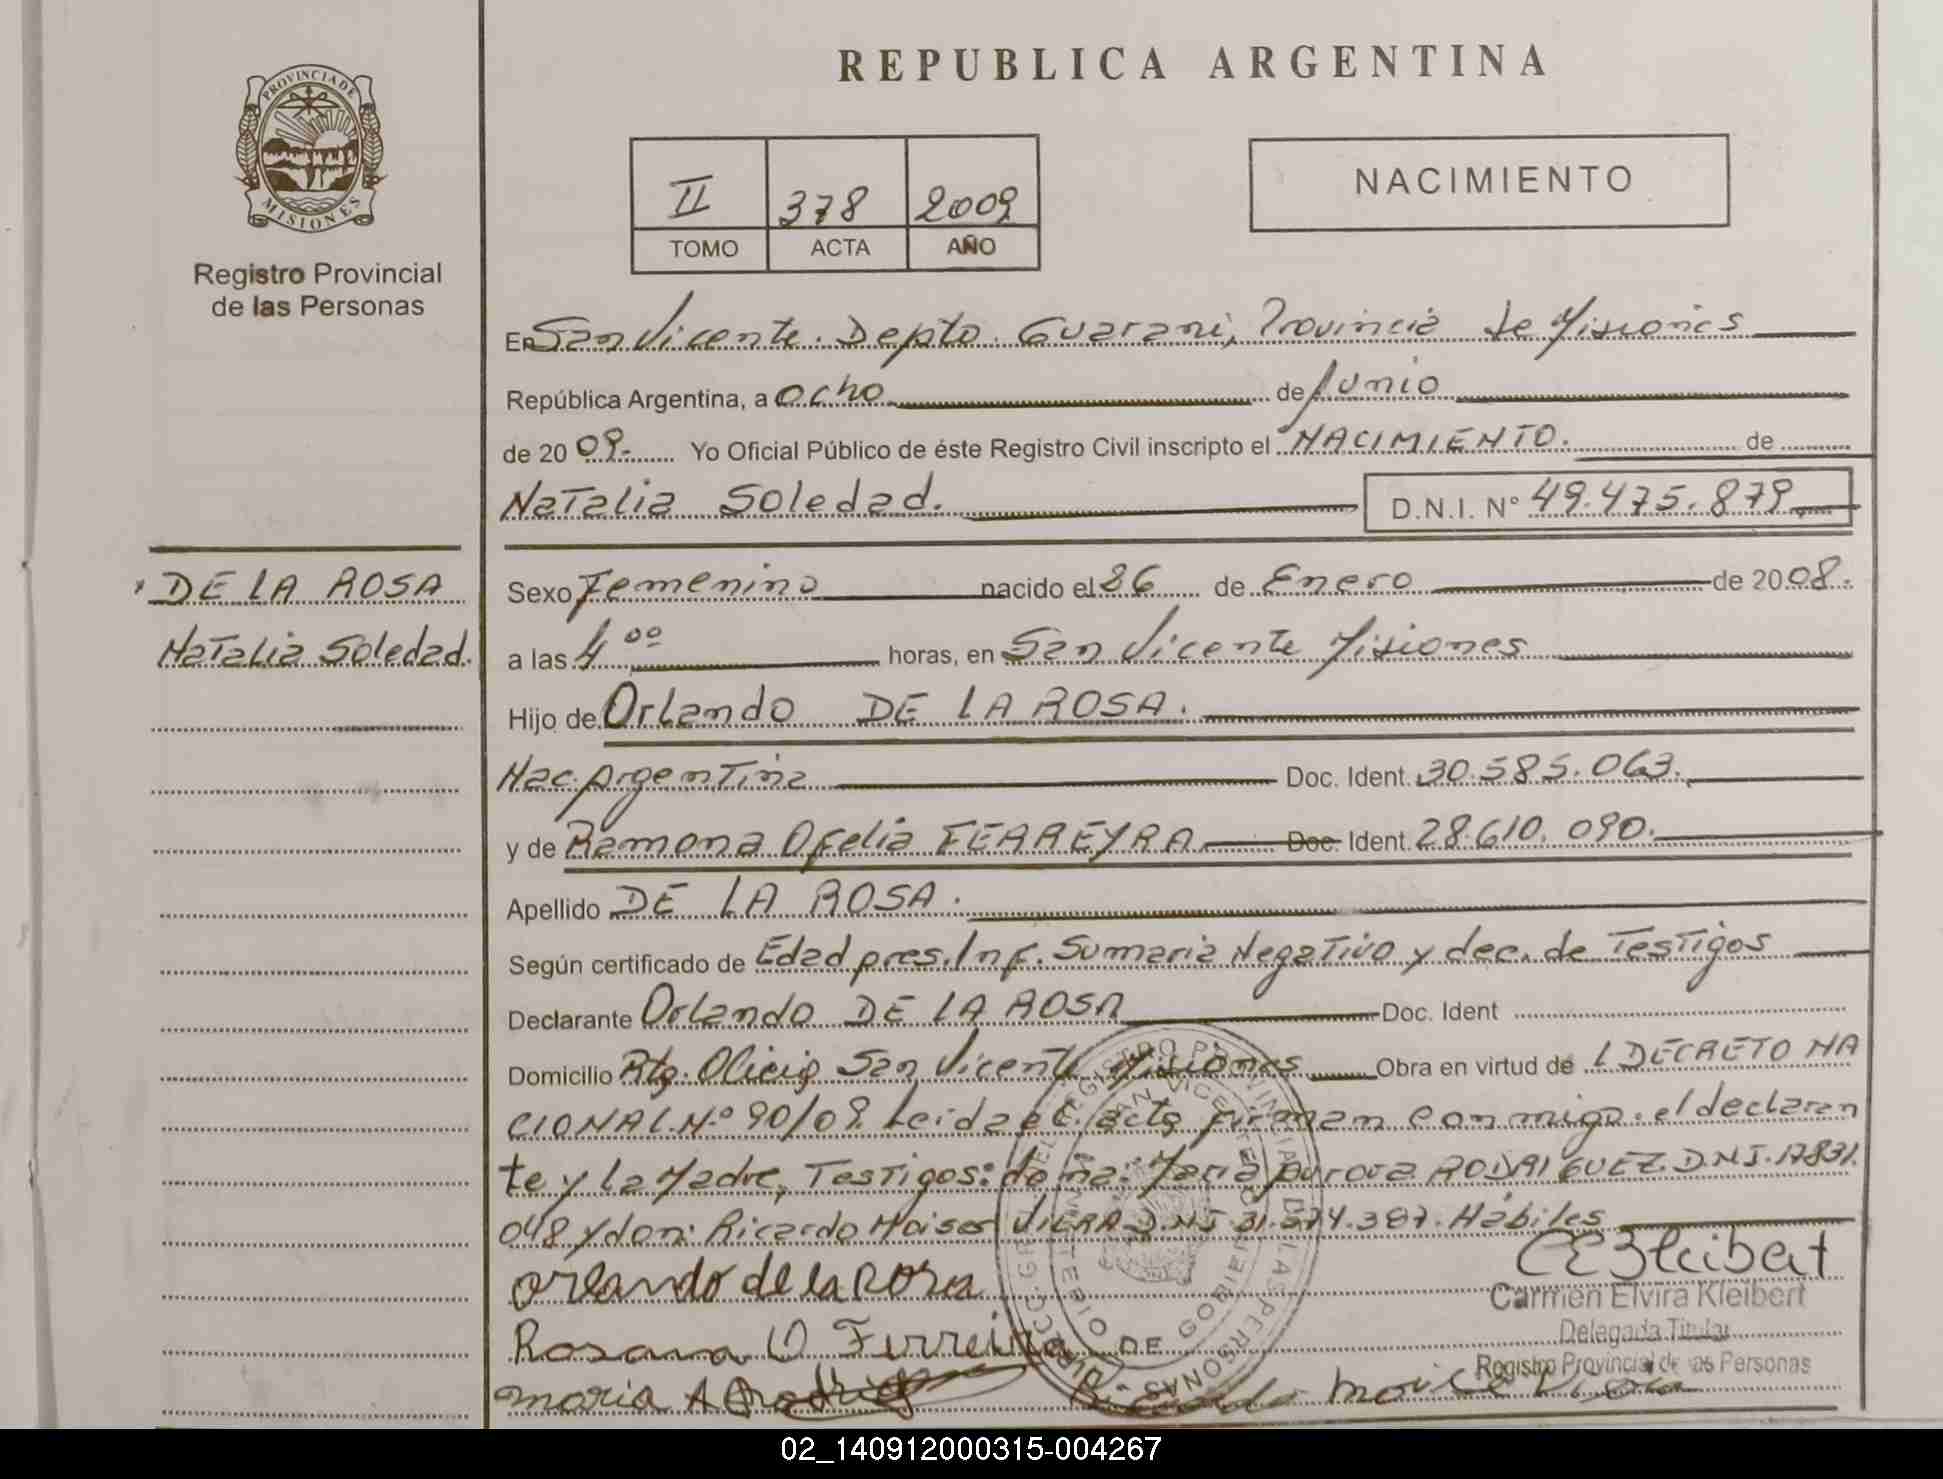 REPUBLICA ARGENTINA
PROVINCIA DE
MISIONES
Registro Provincial
de las Personas
II 378 2009
TOMO ACTA AÑO
NACIMIENTO
En San Vicente. Depto. Guarani, Provincia de Misiones
República Argentina, a ocho de Junio
de 2009.- Yo Oficial Público de éste Registro Civil inscripto el NACIMIENTO. de
Natalia Soledad. D.N.I. N° 49.475.879
DE LA ROSA
Natalia Soledad.
Sexo Femenino nacido el 26 de Enero de 2008.
a las 4 00 horas, en San Vicente Misiones
Hijo de Orlando DE LA ROSA.
Nac. Argentina Doc. Ident. 30.585.063.
y de Ramona Ofelia FERREYRA Doc. Ident. 28.610.090.
Apellido DE LA ROSA.
Según certificado de Edad pres. Inf. Sumaria Negativo y dec. de Testigos
Declarante Orlando DE LA ROSA Doc. Ident
Domicilio San Vicente Misiones Obra en virtud de l DECRETO NA
CIONAL N° 90/09. Leida el acta firman conmigo: el declaran
te y la Madre, Testigos: doña: Maria Aurora RODRIGUEZ. D.N.I. 17831.
048 y don: Ricardo Moises D.N.I 31.574.387. Hábiles
orlando de la Rosa
Carmen Elvira Kleibert
Delegada Titular
Registro Provincial de las Personas
maria A
02_140912000315-004267